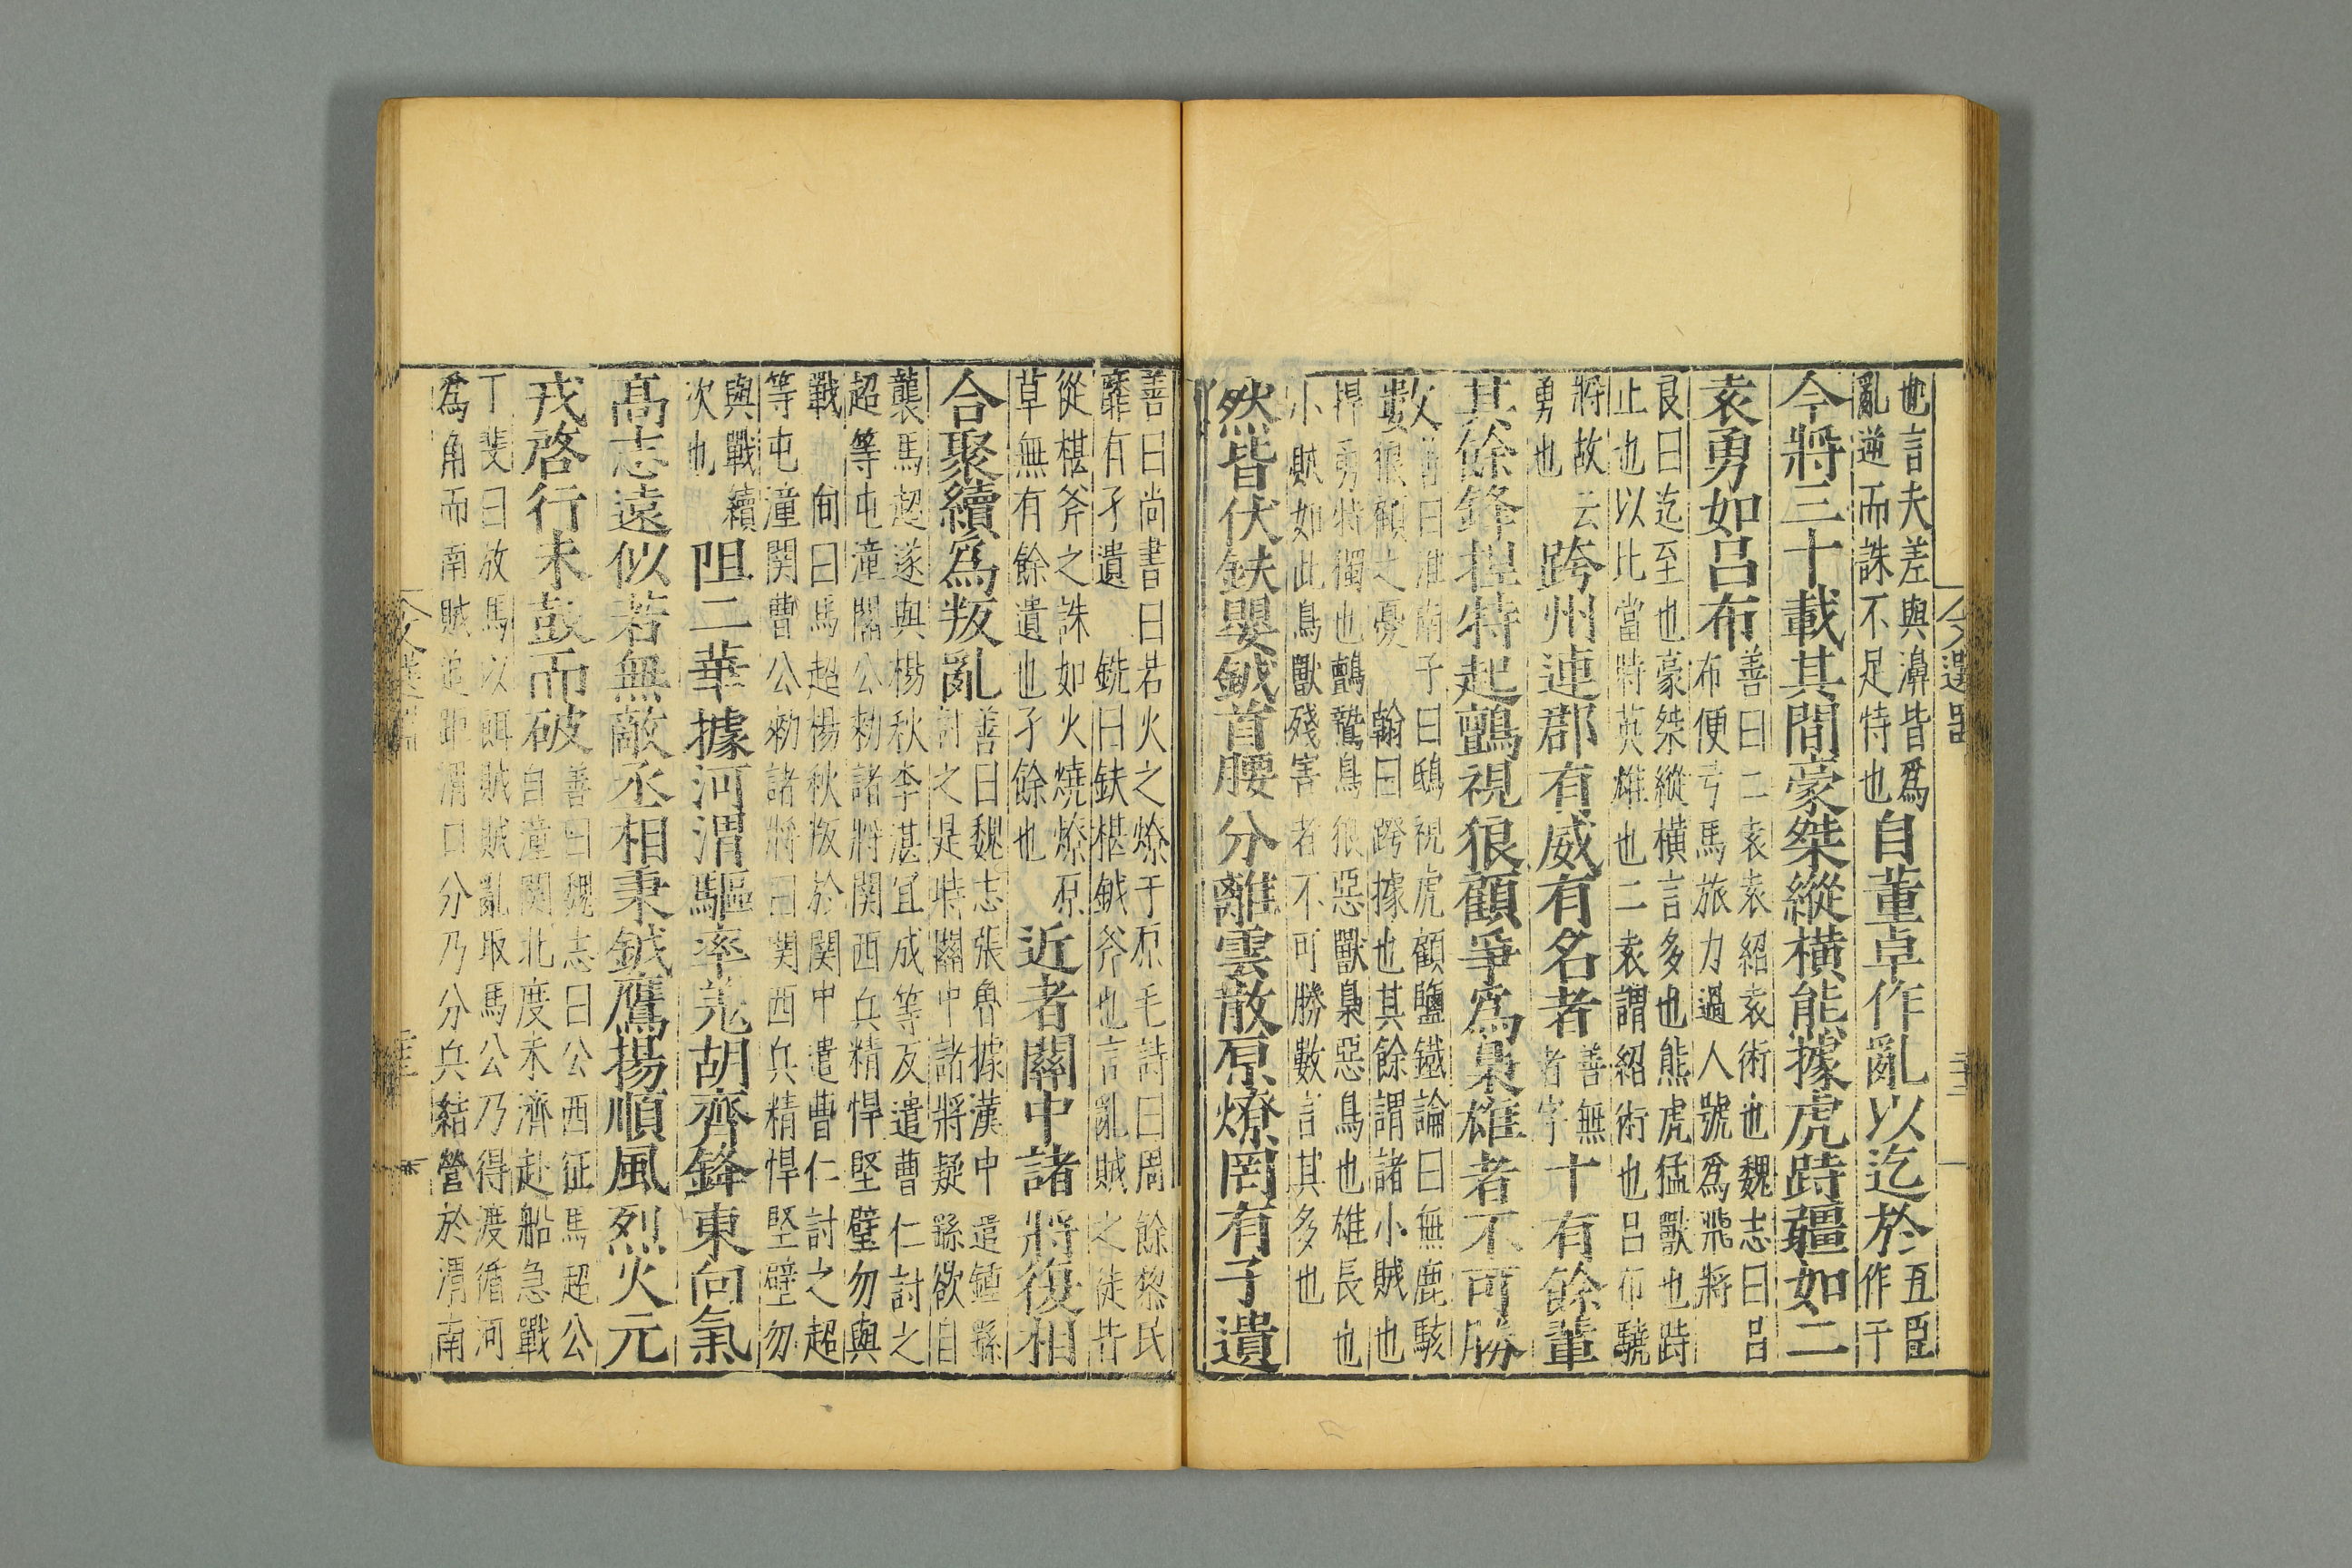 也言夫差與濞皆爲
亂逆而誅不足恃也
自董卓作亂以迄於
五臣
作于
今將三十載其間豪桀縱橫熊據虎跱疆如二
袁勇如呂布
善曰二袁袁紹袁術也魏志曰呂
布便弓馬旅力過人號爲飛將
良曰迄至也豪桀縱橫言多也熊虎猛獸也跱
止也以比當時英雄也二袁謂紹術也呂布驍
將故云
勇也
跨州連郡有威有名者
善無
者字
十有餘輩
其餘鋒捍特起鸇視狼顧爭爲梟雄者不可勝
數
善曰淮南子曰鴟視虎顧鹽鐵論曰無鹿駭
狼顧之憂 翰曰跨據也其餘謂諸小賊也
捍勇特獨也鸇鷙鳥狼惡獸梟惡鳥也雄長也
小賊如此鳥獸殘害者不可勝數言其多也
然皆伏鈇嬰鉞首腰分離雲散原燎罔有孑遺
善曰尚書曰若火之燎于原毛詩曰周餘黎民
靡有孑遺 銑曰鈇椹鉞斧也言亂賊之徒皆
從椹斧之誅如火燒燎原
草無有餘遺也孑餘也
近者關中諸將復相
合聚續爲叛亂
善曰魏志張魯據漢中遣鍾繇
討之是時關中諸將疑繇欲自
襲馬超遂與楊秋李湛宜成等反遣曹仁討之
超等屯潼關公勑諸將関西兵精悍堅壁勿與
戰 向曰馬超楊秋叛於関中遣曹仁討之超
等屯潼関曹公勑諸將曰関西兵精悍堅壁勿
與戰續
次也
阻二華據河渭驅率羌胡齊鋒東向氣
高志遠似若無敵丞相秉鉞鷹揚順風烈火元
戎啓行未鼓而破
善曰魏志曰公西征馬超公
自潼関北度未濟赴船急戰
丁斐曰放馬以餌賊賊亂取馬公乃得渡循河
爲甬而南賊追距渭口分乃分兵結營於渭南